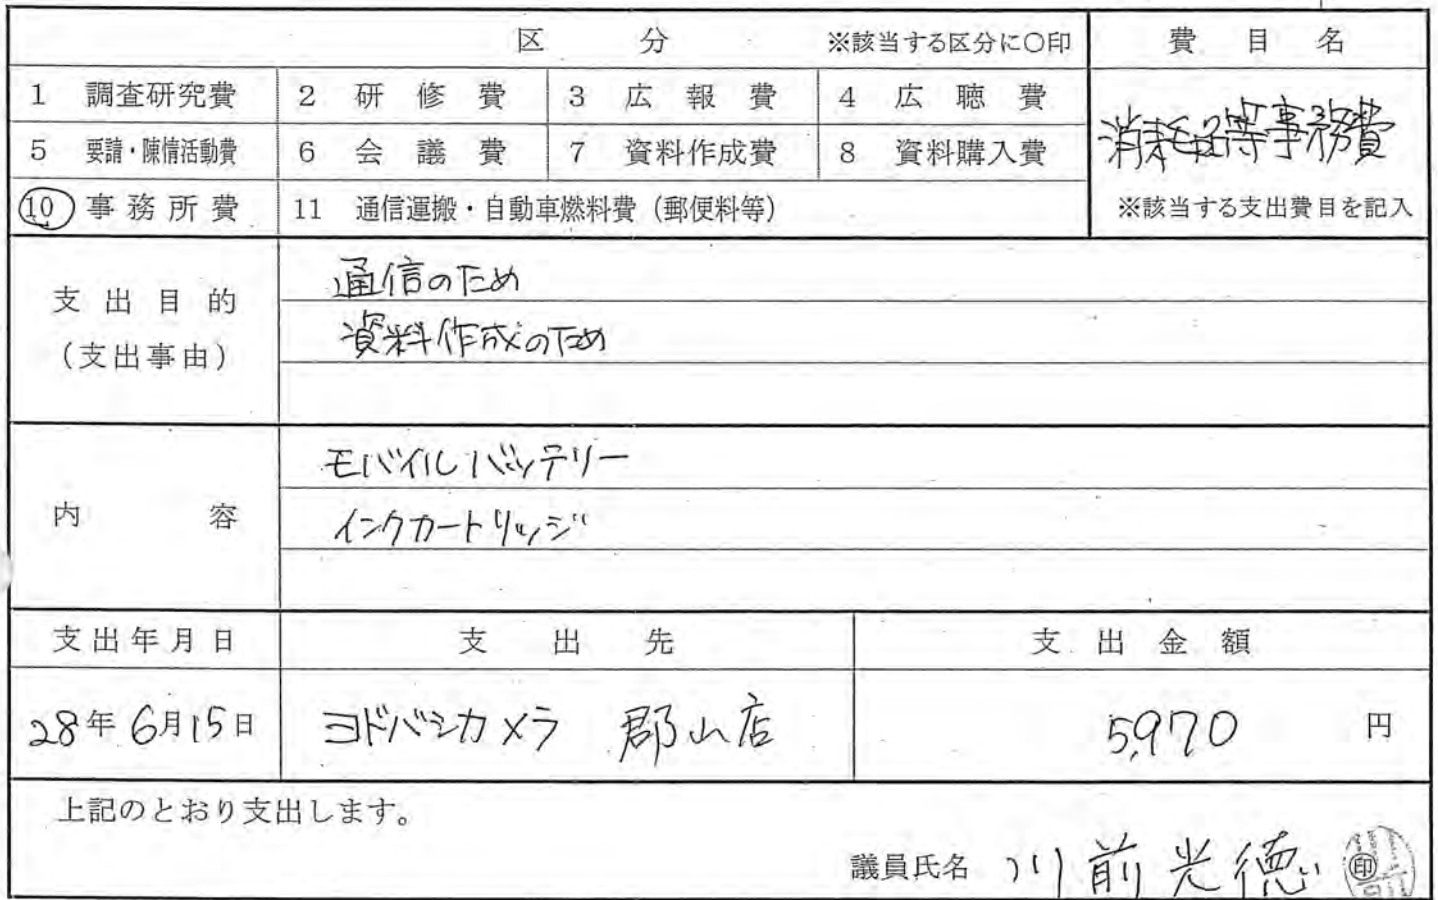 区 分 ※該当する区分に○印 費 目 名
1 調査研究費 2 研 修 費 3 広 報 費 4 広 聴 費
消耗品等事務費
5 要請・陳情活動費 6 会 議 費 7 資料作成費 8 資料購入費
10 事 務 所 費 11 通信運搬・自動車燃料費（郵便料等） ※該当する支出費目を記入
支 出 目 的
（支出事由）
通信のため
資料作成のため
内 容
モバイルバッテリー
インクカートリッジ
支出年月日 支 出 先 支 出 金 額
28年6月15日 ヨドバシカメラ 郡山店 5,970 円
上記のとおり支出します。
議員氏名 川前光徳 印